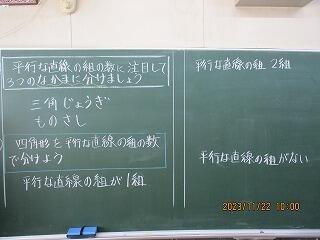 平行な直線の組の数に注目して
3つのなかまに分けましょう
三角じょうぎ
ものさし
四角形を平行な直線の組の数
で分けよう
平行な直線の組が1組
平行な直線の組 2組
平行な直線の組がない
2023/11/22 10:00